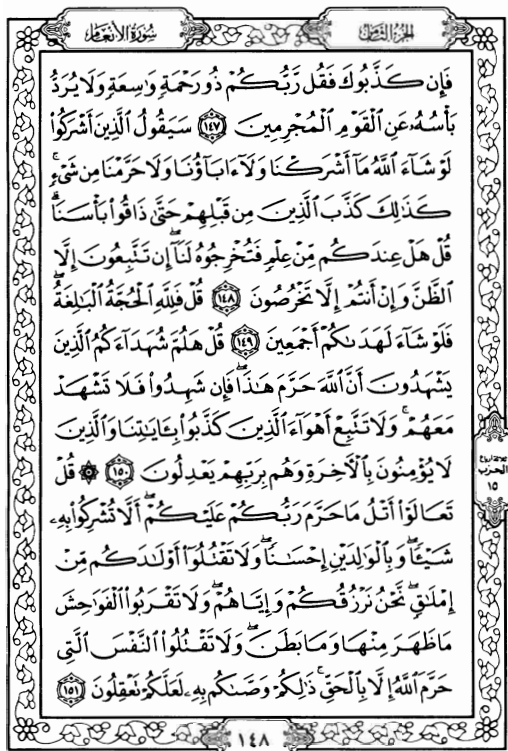 سُورَةُ الأَنعَامِ
الجُزْءُ الثَّامِنُ
فَإِن كَذَّبُوكَ فَقُل رَّبُّكُمْ ذُو رَحْمَةٍ وَٰسِعَةٍ وَلَا يُرَدُّ
بَأْسُهُۥ عَنِ ٱلْقَوْمِ ٱلْمُجْرِمِينَ ١٤٧ سَيَقُولُ ٱلَّذِينَ أَشْرَكُوا۟
لَوْ شَآءَ ٱللَّهُ مَآ أَشْرَكْنَا وَلَآ ءَابَآؤُنَا وَلَا حَرَّمْنَا مِن شَىْءٍ ۚ
كَذَٰلِكَ كَذَّبَ ٱلَّذِينَ مِن قَبْلِهِمْ حَتَّىٰ ذَاقُوا۟ بَأْسَنَا ۗ
قُلْ هَلْ عِندَكُم مِّنْ عِلْمٍ فَتُخْرِجُوهُ لَنَآ ۖ إِن تَتَّبِعُونَ إِلَّا
ٱلظَّنَّ وَإِنْ أَنتُمْ إِلَّا تَخْرُصُونَ ١٤٨ قُلْ فَلِلَّهِ ٱلْحُجَّةُ ٱلْبَٰلِغَةُ ۖ
فَلَوْ شَآءَ لَهَدَىٰكُمْ أَجْمَعِينَ ١٤٩ قُلْ هَلُمَّ شُهَدَآءَكُمُ ٱلَّذِينَ
يَشْهَدُونَ أَنَّ ٱللَّهَ حَرَّمَ هَٰذَا ۖ فَإِن شَهِدُوا۟ فَلَا تَشْهَدْ
مَعَهُمْ ۚ وَلَا تَتَّبِعْ أَهْوَآءَ ٱلَّذِينَ كَذَّبُوا۟ بِـَٔايَٰتِنَا وَٱلَّذِينَ
لَا يُؤْمِنُونَ بِٱلْـَٔاخِرَةِ وَهُم بِرَبِّهِمْ يَعْدِلُونَ ١٥٠ ۞ قُلْ
تَعَالَوْا۟ أَتْلُ مَا حَرَّمَ رَبُّكُمْ عَلَيْكُمْ ۖ أَلَّا تُشْرِكُوا۟ بِهِۦ
شَيْـًٔا ۖ وَبِٱلْوَٰلِدَيْنِ إِحْسَٰنًا ۖ وَلَا تَقْتُلُوٓا۟ أَوْلَٰدَكُم مِّنْ
إِمْلَٰقٍ ۖ نَّحْنُ نَرْزُقُكُمْ وَإِيَّاهُمْ ۖ وَلَا تَقْرَبُوا۟ ٱلْفَوَٰحِشَ
مَا ظَهَرَ مِنْهَا وَمَا بَطَنَ ۖ وَلَا تَقْتُلُوا۟ ٱلنَّفْسَ ٱلَّتِى
حَرَّمَ ٱللَّهُ إِلَّا بِٱلْحَقِّ ۚ ذَٰلِكُمْ وَصَّىٰكُم بِهِۦ لَعَلَّكُمْ تَعْقِلُونَ ١٥١
ثلاثة أرباع
الحزب
١٥
١٤٨